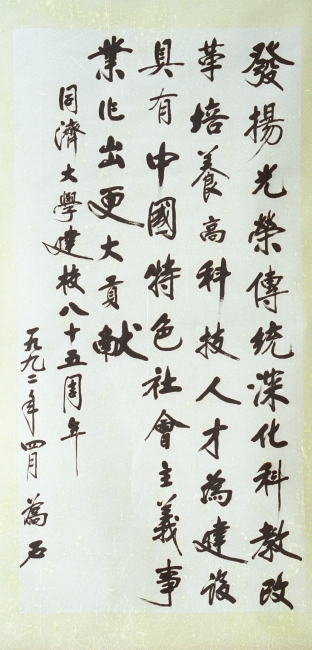 發揚光榮傳統深化科教改
革培養高科技人才為建設
具有中國特色社會主義事
業作出更大貢献
同濟大學建校八十五周年
一九九二年四月 萬石